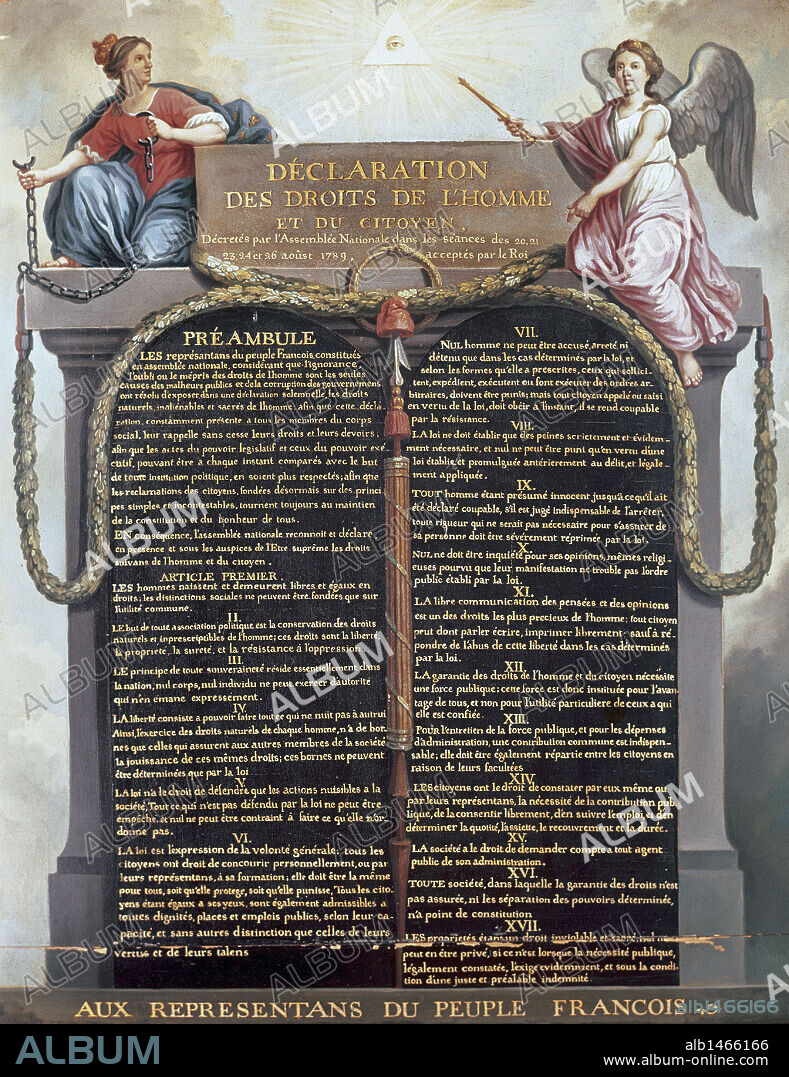 DÉCLARATION
DES DROITS DE L'HOMME
ET DU CITOYEN,
Décretés par l'Assemblée Nationale dans les séances des 20, 21
23, 24 et 26 août 1789, acceptés par le Roi
PRÉAMBULE
LES représentans du peuple Francois, constitués
en assemblée nationale, considérant que l'ignorance,
l'oubli ou le mépris des droits de l'homme sont les seules
causes des malheurs publics et de la corruption des gouvernemens
ont résolu d'exposer dans une déclaration solemnelle, les droits
naturels, inaliénables et sacrés de l'homme; afin que cette décla-
ration, constamment présente a tous les membres du corps
social, leur rappelle sans cesse leurs droits et leurs devoirs;
afin que les actes du pouvoir législatif et ceux du pouvoir exé-
cutif, pouvant être a chaque instant comparés avec le but
de toute institution politique, en soient plus respectés; afin que
les reclamations des citoyens, fondées désormais sur des princi
pes simples et incontestables, tournent toujours au maintien
de la constitution et du bonheur de tous.
EN conséquence, l'assemblée nationale reconnoît et déclare
en présence et sous les auspices de l'Etre suprême les droits
suivans de l'homme et du citoyen.
ARTICLE PREMIER.
LES hommes naissent et demeurent libres et égaux en
droits; les distinctions sociales ne peuvent être fondées que sur
l'utilité commune.
II.
LE but de toute association politique est la conservation des droits
naturels et inprescriptibles de l'homme; ces droits sont la liberté,
la propriété, la sureté, et la résistance à l'oppression.
III.
LE principe de toute souveraineté réside essentiellement dans
la nation, nul corps, nul individu ne peut exercer d'autorité
qui n'en émane expressément.
IV.
LA liberté consiste a pouvoir faire tout ce qui ne nuit pas à autrui
Ainsi, l'exercice des droits naturels de chaque homme, n'a de bor-
nes que celles qui assurent aux autres membres de la société
la jouissance de ces mêmes droits; ces bornes ne peuvent
être déterminées que par la loi
V.
LA loi n'a le droit de défendre que les actions nuisibles a la
société. Tout ce qui n'est pas défendu par la loi ne peut être
empêché, et nul ne peut être contraint à faire ce qu'elle n'or-
donne pas.
VI.
LA loi est l'expression de la volonté générale; tous les
citoyens ont droit de concourir personnellement, ou par
leurs représentans, à sa formation; elle doit être la même
pour tous, soit qu'elle protege, soit qu'elle punisse, Tous les cito-
yens étant égaux a ses yeux, sont également admissibles a
toutes dignités, places et emplois publics, selon leur ca-
pacité, et sans autres distinction que celles de leurs
vertus et de leurs talens
VII.
NUL homme ne peut être accusé, arreté, ni
détenu que dans les cas déterminés par la loi, et
selon les formes qu'elle a prescrites, ceux qui sollici-
tent, expédient, exécutent ou font exécuter des ordres ar-
bitraires, doivent être punis; mais tout citoyen appelé ou saisi
en vertu de la loi, doit obéir a l'instant, il se rend coupable
par la résistance.
VIII.
LA loi ne doit établir que des peines strictement et évidem-
ment nécessaire, et nul ne peut être puni qu'en vertu d'une
loi établie et promulguée antérierement au délit, et légale-
ment appliquée.
IX.
TOUT homme étant présumé innocent jusqu'à ce qu'il ait
été déclaré coupable, s'il est jugé indispensable de l'arrêter,
toute rigueur qui ne serait pas nécessaire pour s'assurer de
sa personne doit être sévèrement réprimée par la loi.
X.
NUL ne doit être inquiété pour ses opinions, mêmes religi-
euses pourvu que leur manifestation ne trouble pas l'ordre
public établi par la loi.
XI.
LA libre communication des pensées et des opinions
est un des droits les plus precieux de l'homme; tout citoyen
peut dont parler écrire, imprimer librement: sauf à ré-
pondre de l'abus de cette liberté dans les cas déterminés
par la loi.
XII.
LA garantie des droits de l'homme et du citoyen nécessite
une force publique; cette force est donc instituée pour l'avan-
tage de tous, et non pour l'utilité particuliere de ceux a qui
elle est confiée.
XIII.
POUR l'entretien de la force publique, et pour les dépenses
d'administration, une contribution commune est indispen-
sable; elle doit être également répartie entre les citoyens en
raison de leurs facultées
XIV.
LES citoyens ont le droit de constater par eux même ou
par leurs représentans, la nécessité de la contribution pub
lique, de la consentir librement, d'en suivre l'emploi, et d'en
déterminer la quotité, l'assiette, le recouvrement et la durée.
XV.
LA société a le droit de demander compte a tout agent
public de son administration.
XVI.
TOUTE société, dans laquelle la garantie des droits n'est
pas assurée, ni les séparation des pouvoirs déterminée,
n'a point de constitution
XVII.
LES propriétés étant un droit inviolable et sacré, nul ne
peut en être privé, si ce n'est lorsque la nécessité publique,
légalement constatée, l'exige evidemment, et sous la condi-
tion d'une juste et préalable indemnité.
AUX REPRESENTANS DU PEUPLE FRANCOIS
alb1466166
ALBUM
alb1466166
www.album-online.com